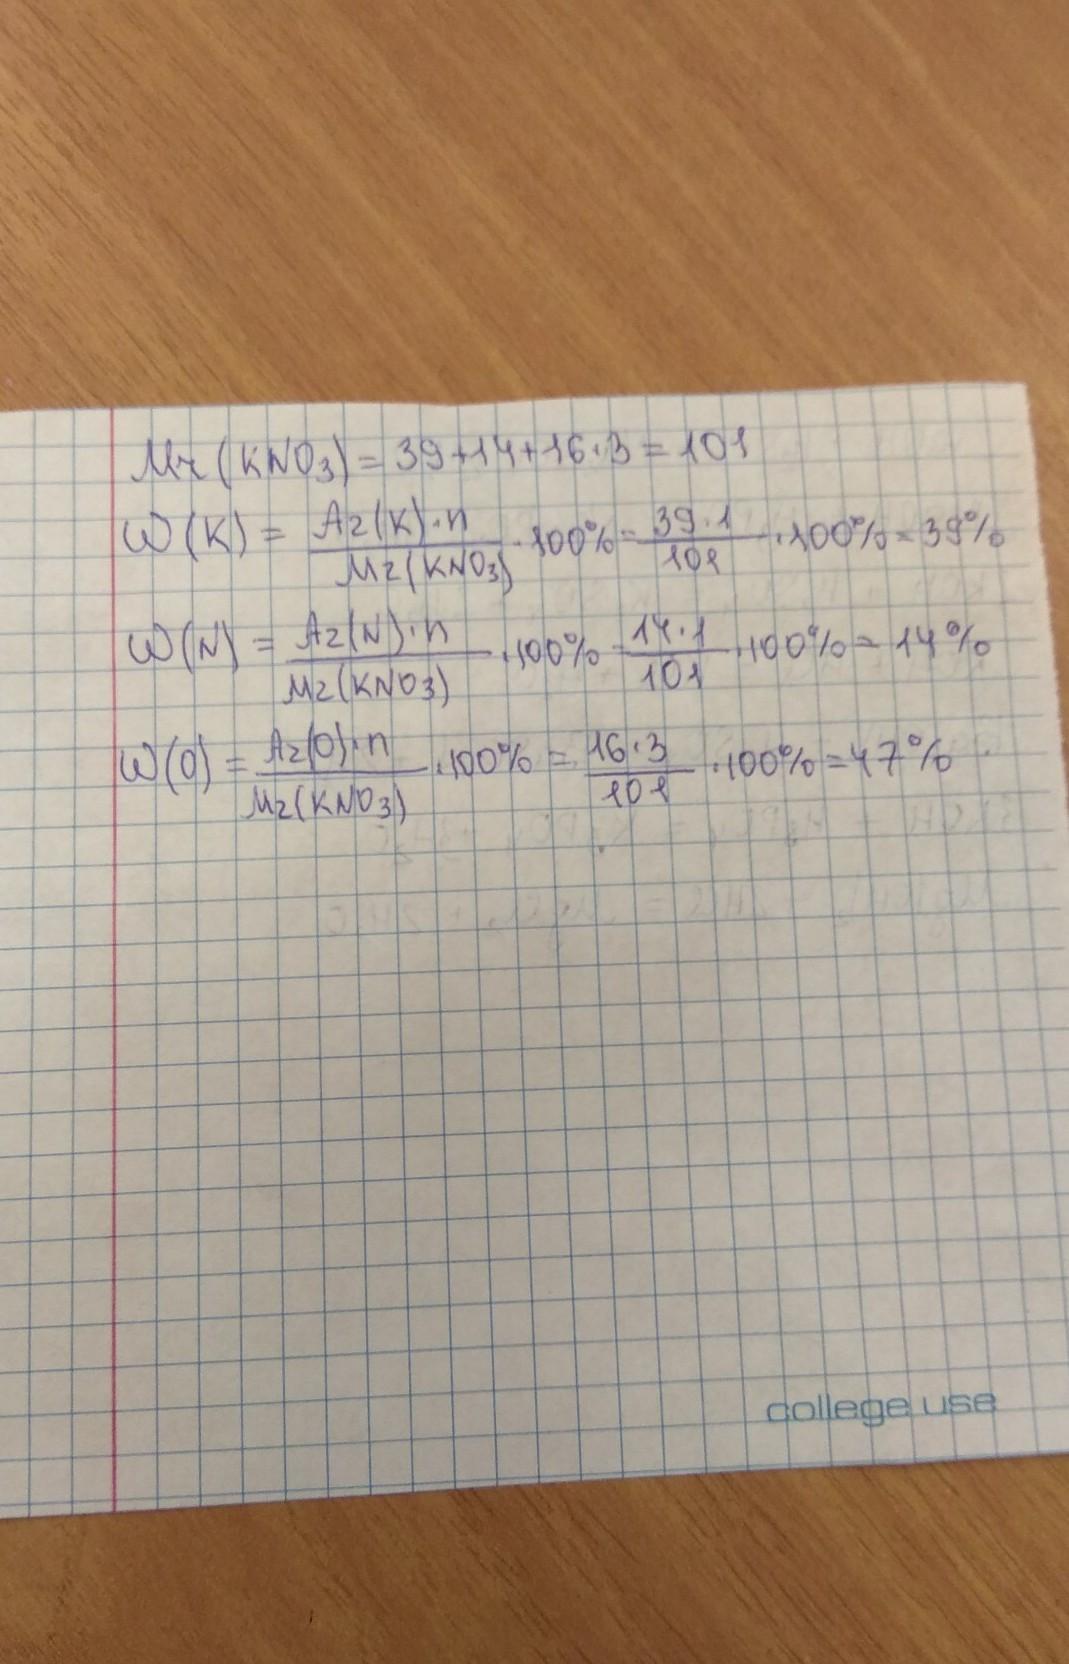 Mr(KNO₃) = 39+14+16·3 = 101
W(K) = Ar(K)·n / Mr(KNO₃) ·100% = 39·1 / 101 ·100% = 39%
W(N) = Ar(N)·n / Mr(KNO₃) ·100% = 14·1 / 101 ·100% = 14%
W(O) = Ar(O)·n / Mr(KNO₃) ·100% = 16·3 / 101 ·100% = 47%
college use